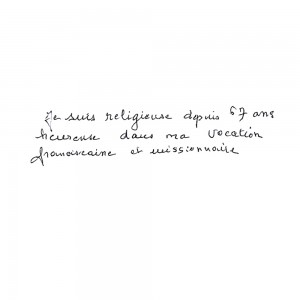 Je suis religieuse depuis 67 ans
heureuse dans ma vocation
franciscaine et missionnaire